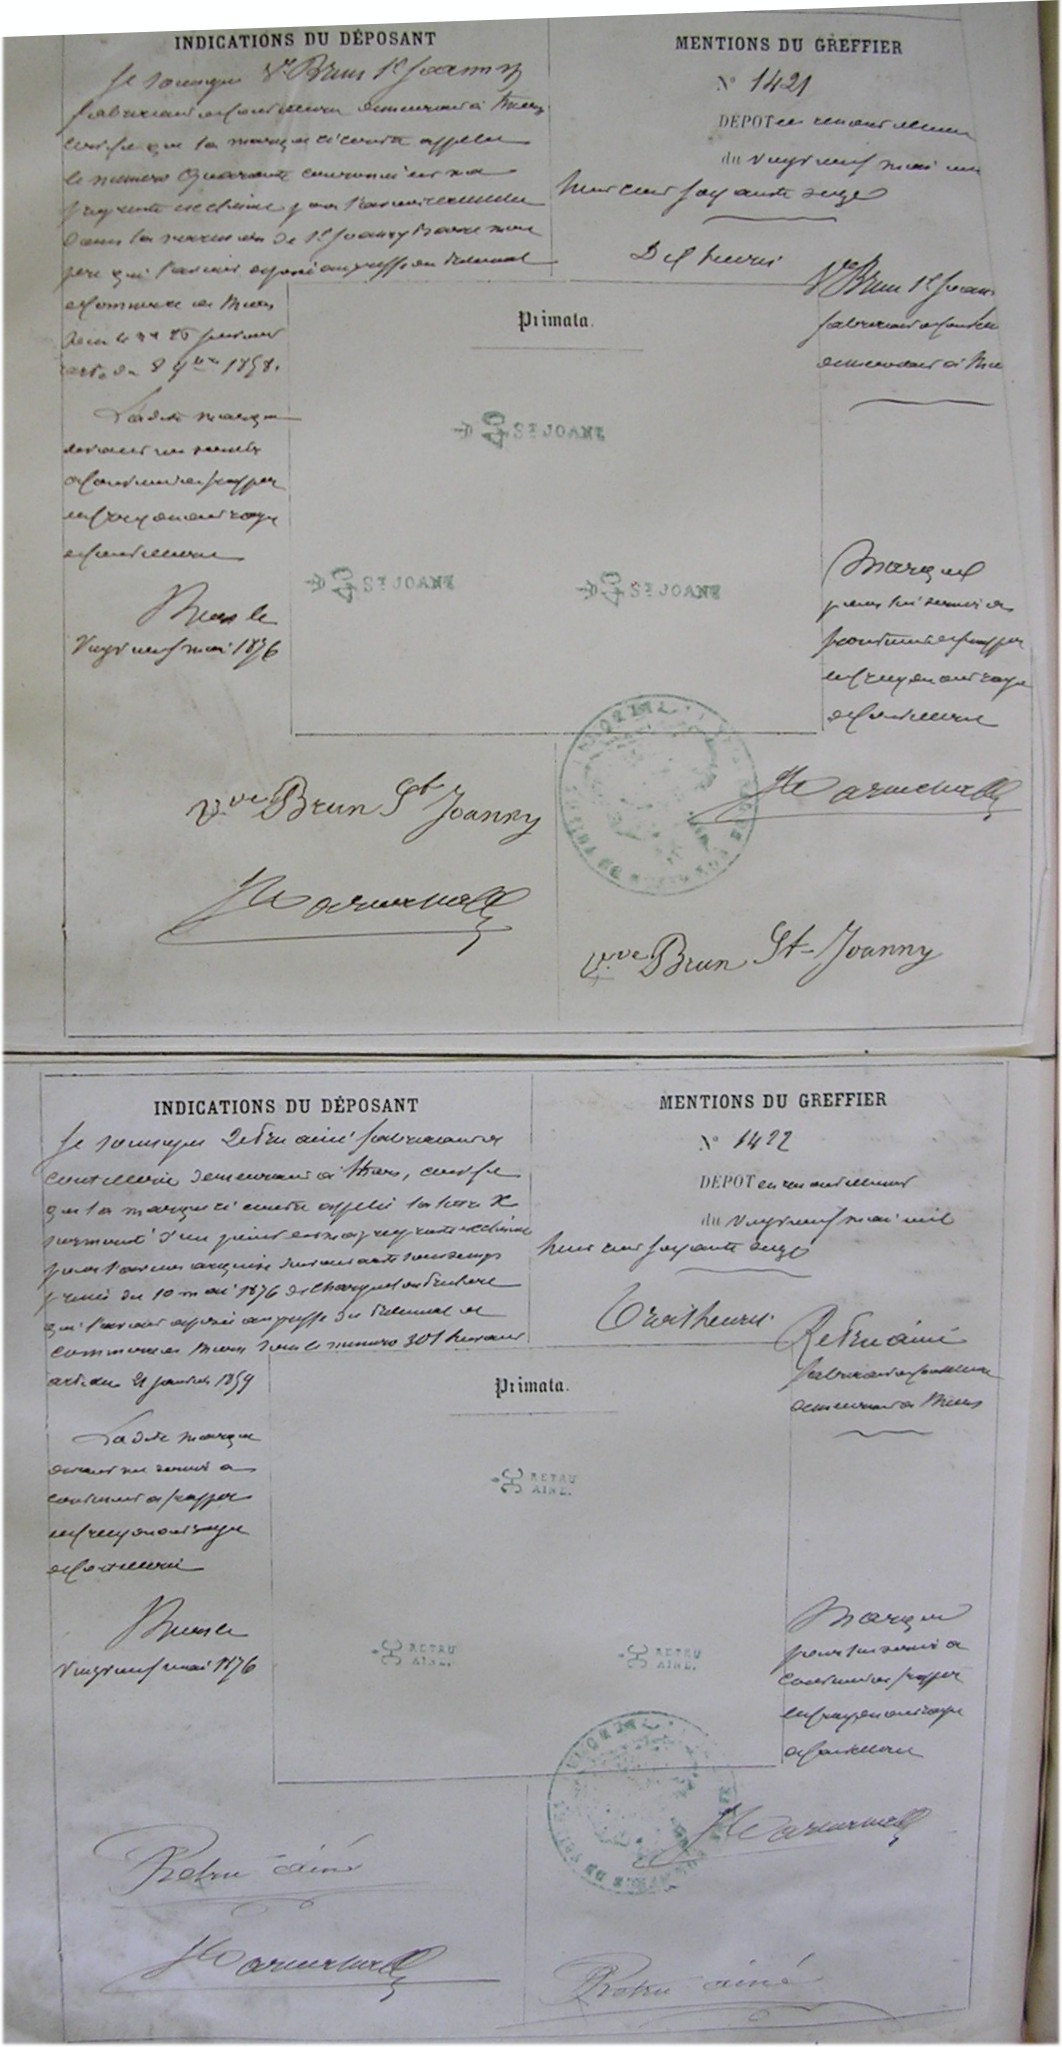 INDICATIONS DU DÉPOSANT
Je soussigné Vve Brun St Joanny
fabricant de coutellerie demeurant à Thiers
certifie que la marque ci contre appelée
le numéro Quarante couronné est ma
propriété exclusive pour l'avoir
dans la succession de St Joanny Barre mon
père qui l'avait déposé au greffe du Tribunal
de Commerce de Thiers
sous le
du 8 9bre 1858.
La dite marque
devant me servir
à continuer à frapper
en creux mon ouvrage
de coutellerie
Thiers le
Vingt neuf mai 1876
Vve Brun St Joanny
MENTIONS DU GREFFIER
No 1421
DÉPOT en renouvellement
du vingt neuf mai mil
huit cent soixante seize
Dix heures
Vve Brun St Joanny
fabricant de coutellerie
demeurant à Thiers
Primata.
ST JOANY
ST JOANY
ST JOANY
Marque
pour lui servir à
continuer à frapper
en creux son ouvrage
de coutellerie
Vve Brun St-Joanny
INDICATIONS DU DÉPOSANT
Je soussigné Retru ainé fabricant de
coutellerie demeurant à Thiers, certifie
que la marque ci contre appelée la lettre X
surmonté d'un point est ma propriété exclusive
pour l'avoir acquise suivant acte sous seings
privés du 10 mai 1876 de
qui l'avait déposé au greffe du Tribunal de
commerce de Thiers sous le numéro 301 suivant
acte du 21 janvier 1859
La dite marque
devant me servir à
continuer à frapper
en creux mon ouvrage
de coutellerie
Thiers le
Vingt neuf mai 1876
Retru ainé
MENTIONS DU GREFFIER
No 1422
DEPOT en renouvellement
du vingt neuf mai mil
huit cent soixante seize
Trois heures.
Retru ainé
fabricant de coutellerie
demeurant à Thiers
Primata.
RETRU
AINE.
RETRU
AINE.
RETRU
AINE.
Marque
pour lui servir à
continuer à frapper
en creux son ouvrage
de coutellerie
Retru ainé